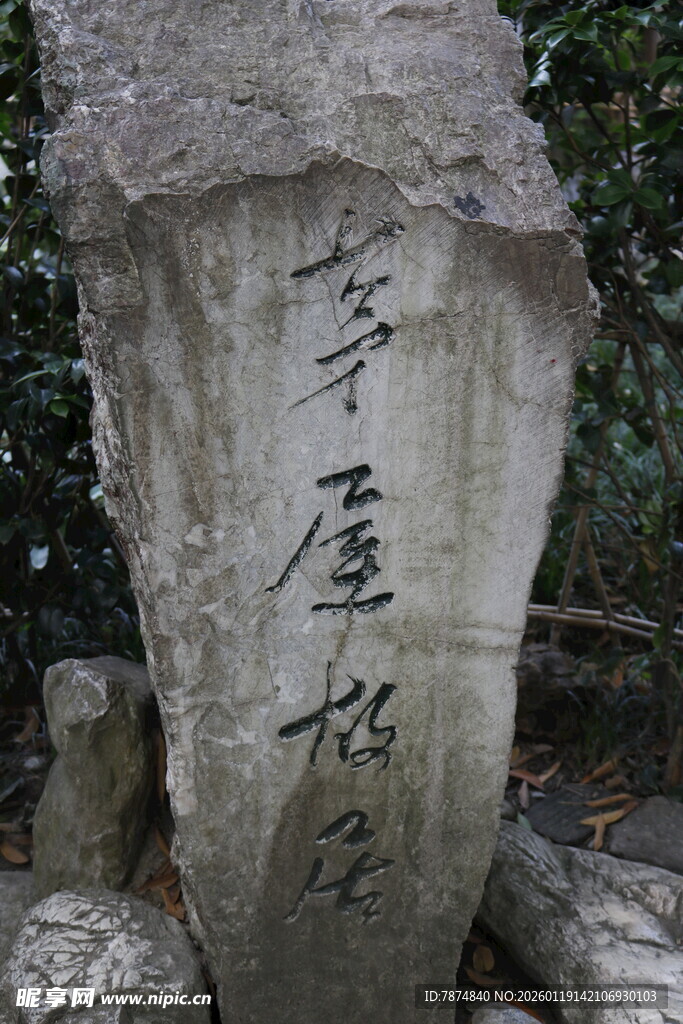 茅屋故居
昵享网 www.nipic.cn
ID:7874840 NO:20260119142106930103